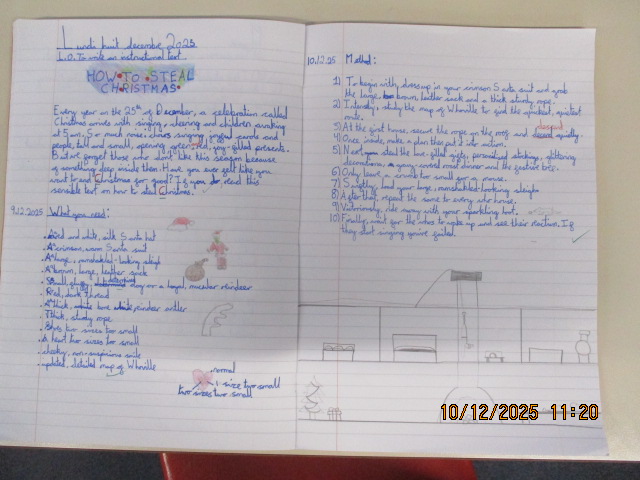 Lundi huit decembre 2025
L.O. To write an instructional text
HOW TO STEAL
CHRISTMAS
Every year on the 25th of December, a celebration called
Christmas arrives with singing, cheering and children awaking
at 5am. So much noise, choirs singing, joyful cards and
people, tall and small, opening joy-filled presents.
But we forget those who don't like this season because
of something deep inside them. Have you ever felt like you
want to end Christmas for good? If you do read this
sensible text on how to steal Christmas.
9.12.2025 What you need:
Red and white, silk Santa hat
A crimson, warm Santa suit
A large, ramshackled-looking sleigh
A brown, large, leather sack
Small dog or a loyal, muscular reindeer
Red, dark thread
A thick, white reindeer antler
Thick, sturdy rope
Shoes two sizes two small
A heart two sizes two small
cheeky, non-suspicious smile
updated, detailed map of Whoville
normal
1 size two small
two sizes two small
10.12.25 Method:
1) To begin with, dress up in your crimson Santa suit and grab
the large, brown, leather sack and a thick sturdy rope.
2) study the map of Whoville to find the quickest, quietest
route.
3) At the first house, secure the rope on the roof and descend quietly.
4) Once inside, make a plan then put it into action.
5) Next, steal the love-filled gifts, personalised stockings, glittering
decorations,
6) Only leave a crumb too small for a mouse.
7) Safely load your large, ramshackled-looking sleigh
8) After that, repeat the same to every who house.
9) Victoriously, ride away with your sparkling loot.
10) Finally, wait for the whos to wake up and see their reaction. If
they start singing you've failed.
10/12/2025 11:20